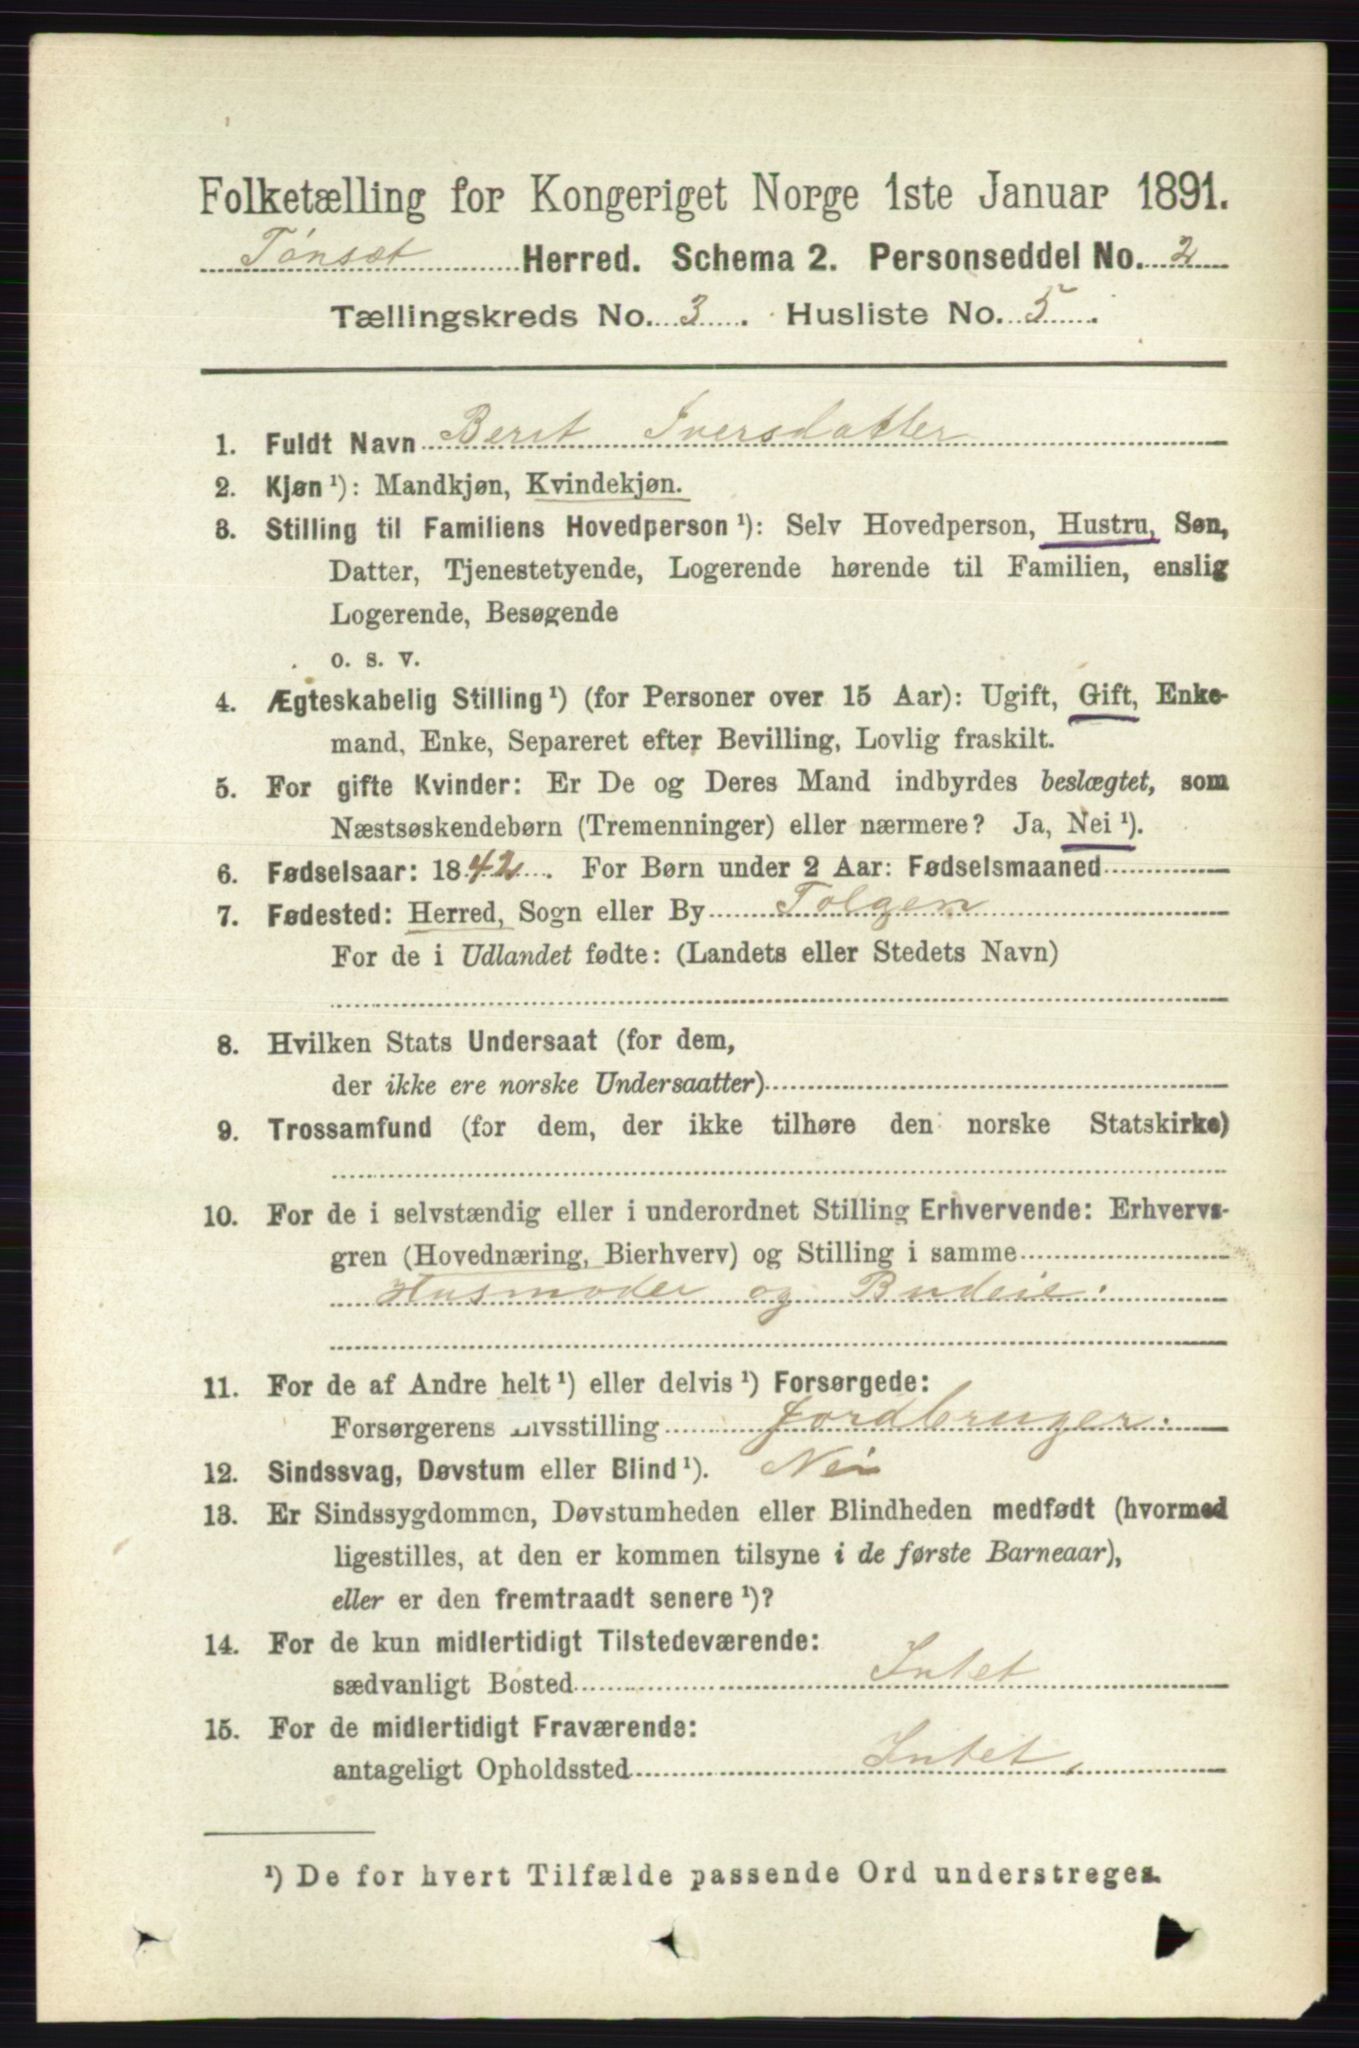 Folketælling for Kongeriget Norge 1ste Januar 1891.
Tönset Herred. Schema 2. Personseddel No. 2
Tællingskreds No. 3. Husliste No. 5.
1. Fuldt Navn Berit Iversdatter
2. Kjøn ¹): Mandkjøn, Kvindekjøn.
3. Stilling til Familiens Hovedperson ¹): Selv Hovedperson, Hustru, Søn,
Datter, Tjenestetyende, Logerende hørende til Familien, enslig
Logerende, Besøgende
o. s. v.
4. Ægteskabelig Stilling ¹) (for Personer over 15 Aar): Ugift, Gift, Enke-
mand, Enke, Separeret efter Bevilling, Lovlig fraskilt.
5. For gifte Kvinder: Er De og Deres Mand indbyrdes beslægtet, som
Næstsøskendebørn (Tremenninger) eller nærmere? Ja, Nei ¹).
6. Fødselsaar: 1842. For Børn under 2 Aar: Fødselsmaaned
7. Fødested: Herred, Sogn eller By Tolgen
For de i Udlandet fødte: (Landets eller Stedets Navn)
8. Hvilken Stats Undersaat (for dem,
der ikke ere norske Undersaatter)
9. Trossamfund (for dem, der ikke tilhøre den norske Statskirke)
10. For de i selvstændig eller i underordnet Stilling Erhvervende: Erhvervs-
gren (Hovednæring, Bierhverv) og Stilling i samme
Husmoder og Budeie.
11. For de af Andre helt ¹) eller delvis ¹) Forsørgede:
Forsørgerens Livsstilling Jordbruger.
12. Sindssvag, Døvstum eller Blind ¹). Nei
13. Er Sindssygdommen, Døvstumheden eller Blindheden medfødt (hvormed
ligestilles, at den er kommen tilsyne i de første Barneaar),
eller er den fremtraadt senere ¹)?
14. For de kun midlertidigt Tilstedeværende:
sædvanligt Bosted Intet
15. For de midlertidigt Fraværende:
antageligt Opholdssted Intet.
¹) De for hvert Tilfælde passende Ord understreges.